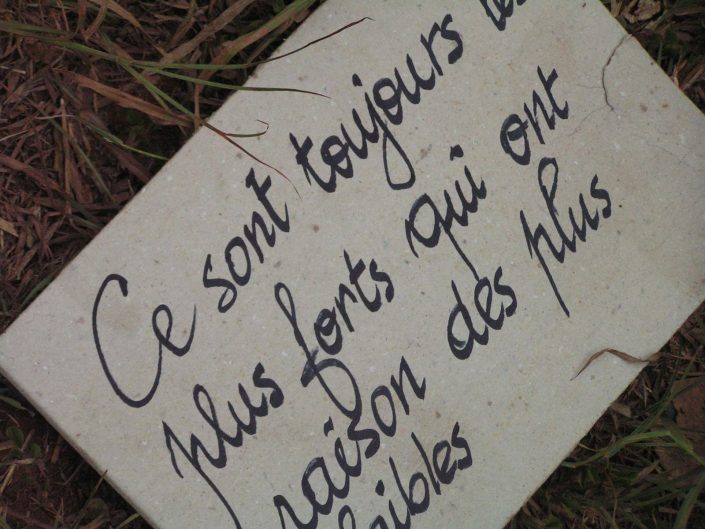 Ce sont toujours les
plus forts qui ont
raison des plus
faibles